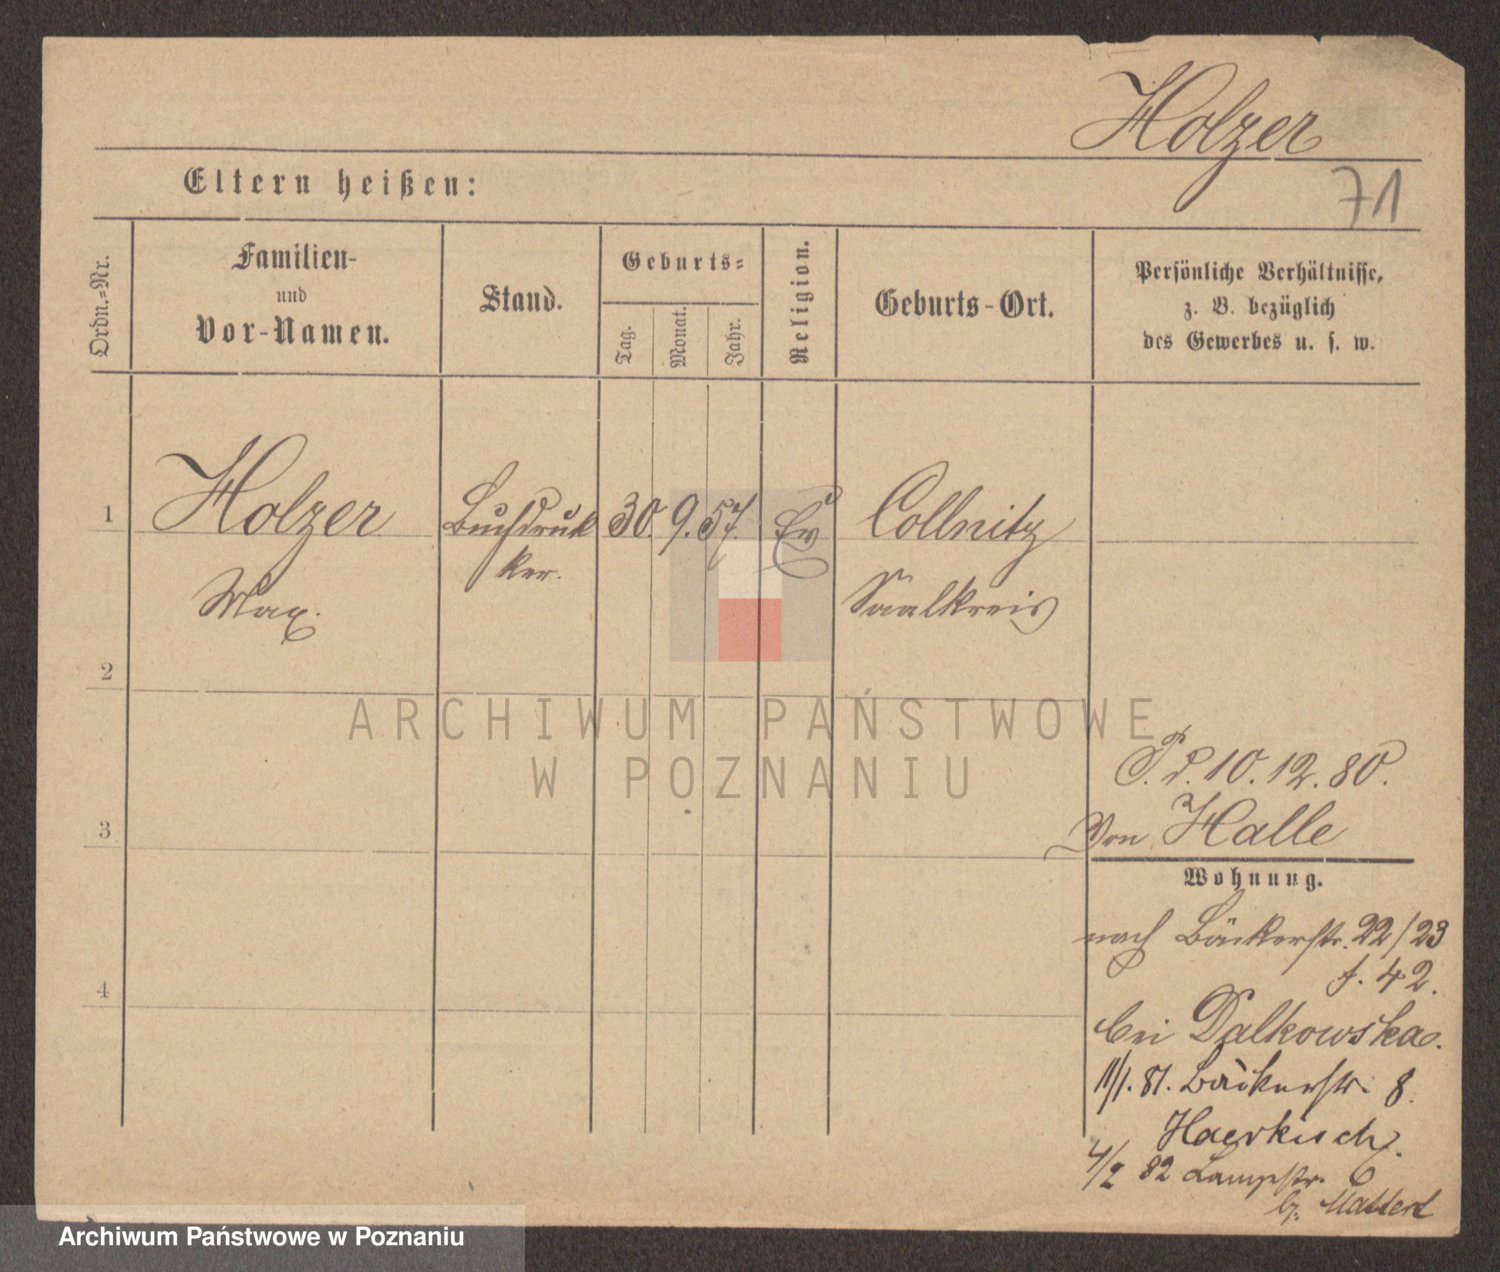 Holzer
71
Eltern heißen:
Ordn.=Nr.
Familien-
und
Vor-Namen.
Stand.
Geburts=
Tag.
Monat.
Jahr.
Religion.
Geburts-Ort.
Persönliche Verhältnisse,
z. B. bezüglich
des Gewerbes u. s. w.
1
Holzer
Max.
Buchdruk
ker.
30. 9. 57.
Ev
Collnitz
Saalkreis
2
3
4
P. d. 10. 12. 80.
Von Halle
Wohnung.
nach Bäckerstr. 22/23
f. 42.
bei Dalkowska.
11/1. 81. Bäckerstr. 8.
Haerkisch.
4/2 82 Lampstr.
b. Mattert
ARCHIWUM PAŃSTWOWE
W POZNANIU
Archiwum Państwowe w Poznaniu